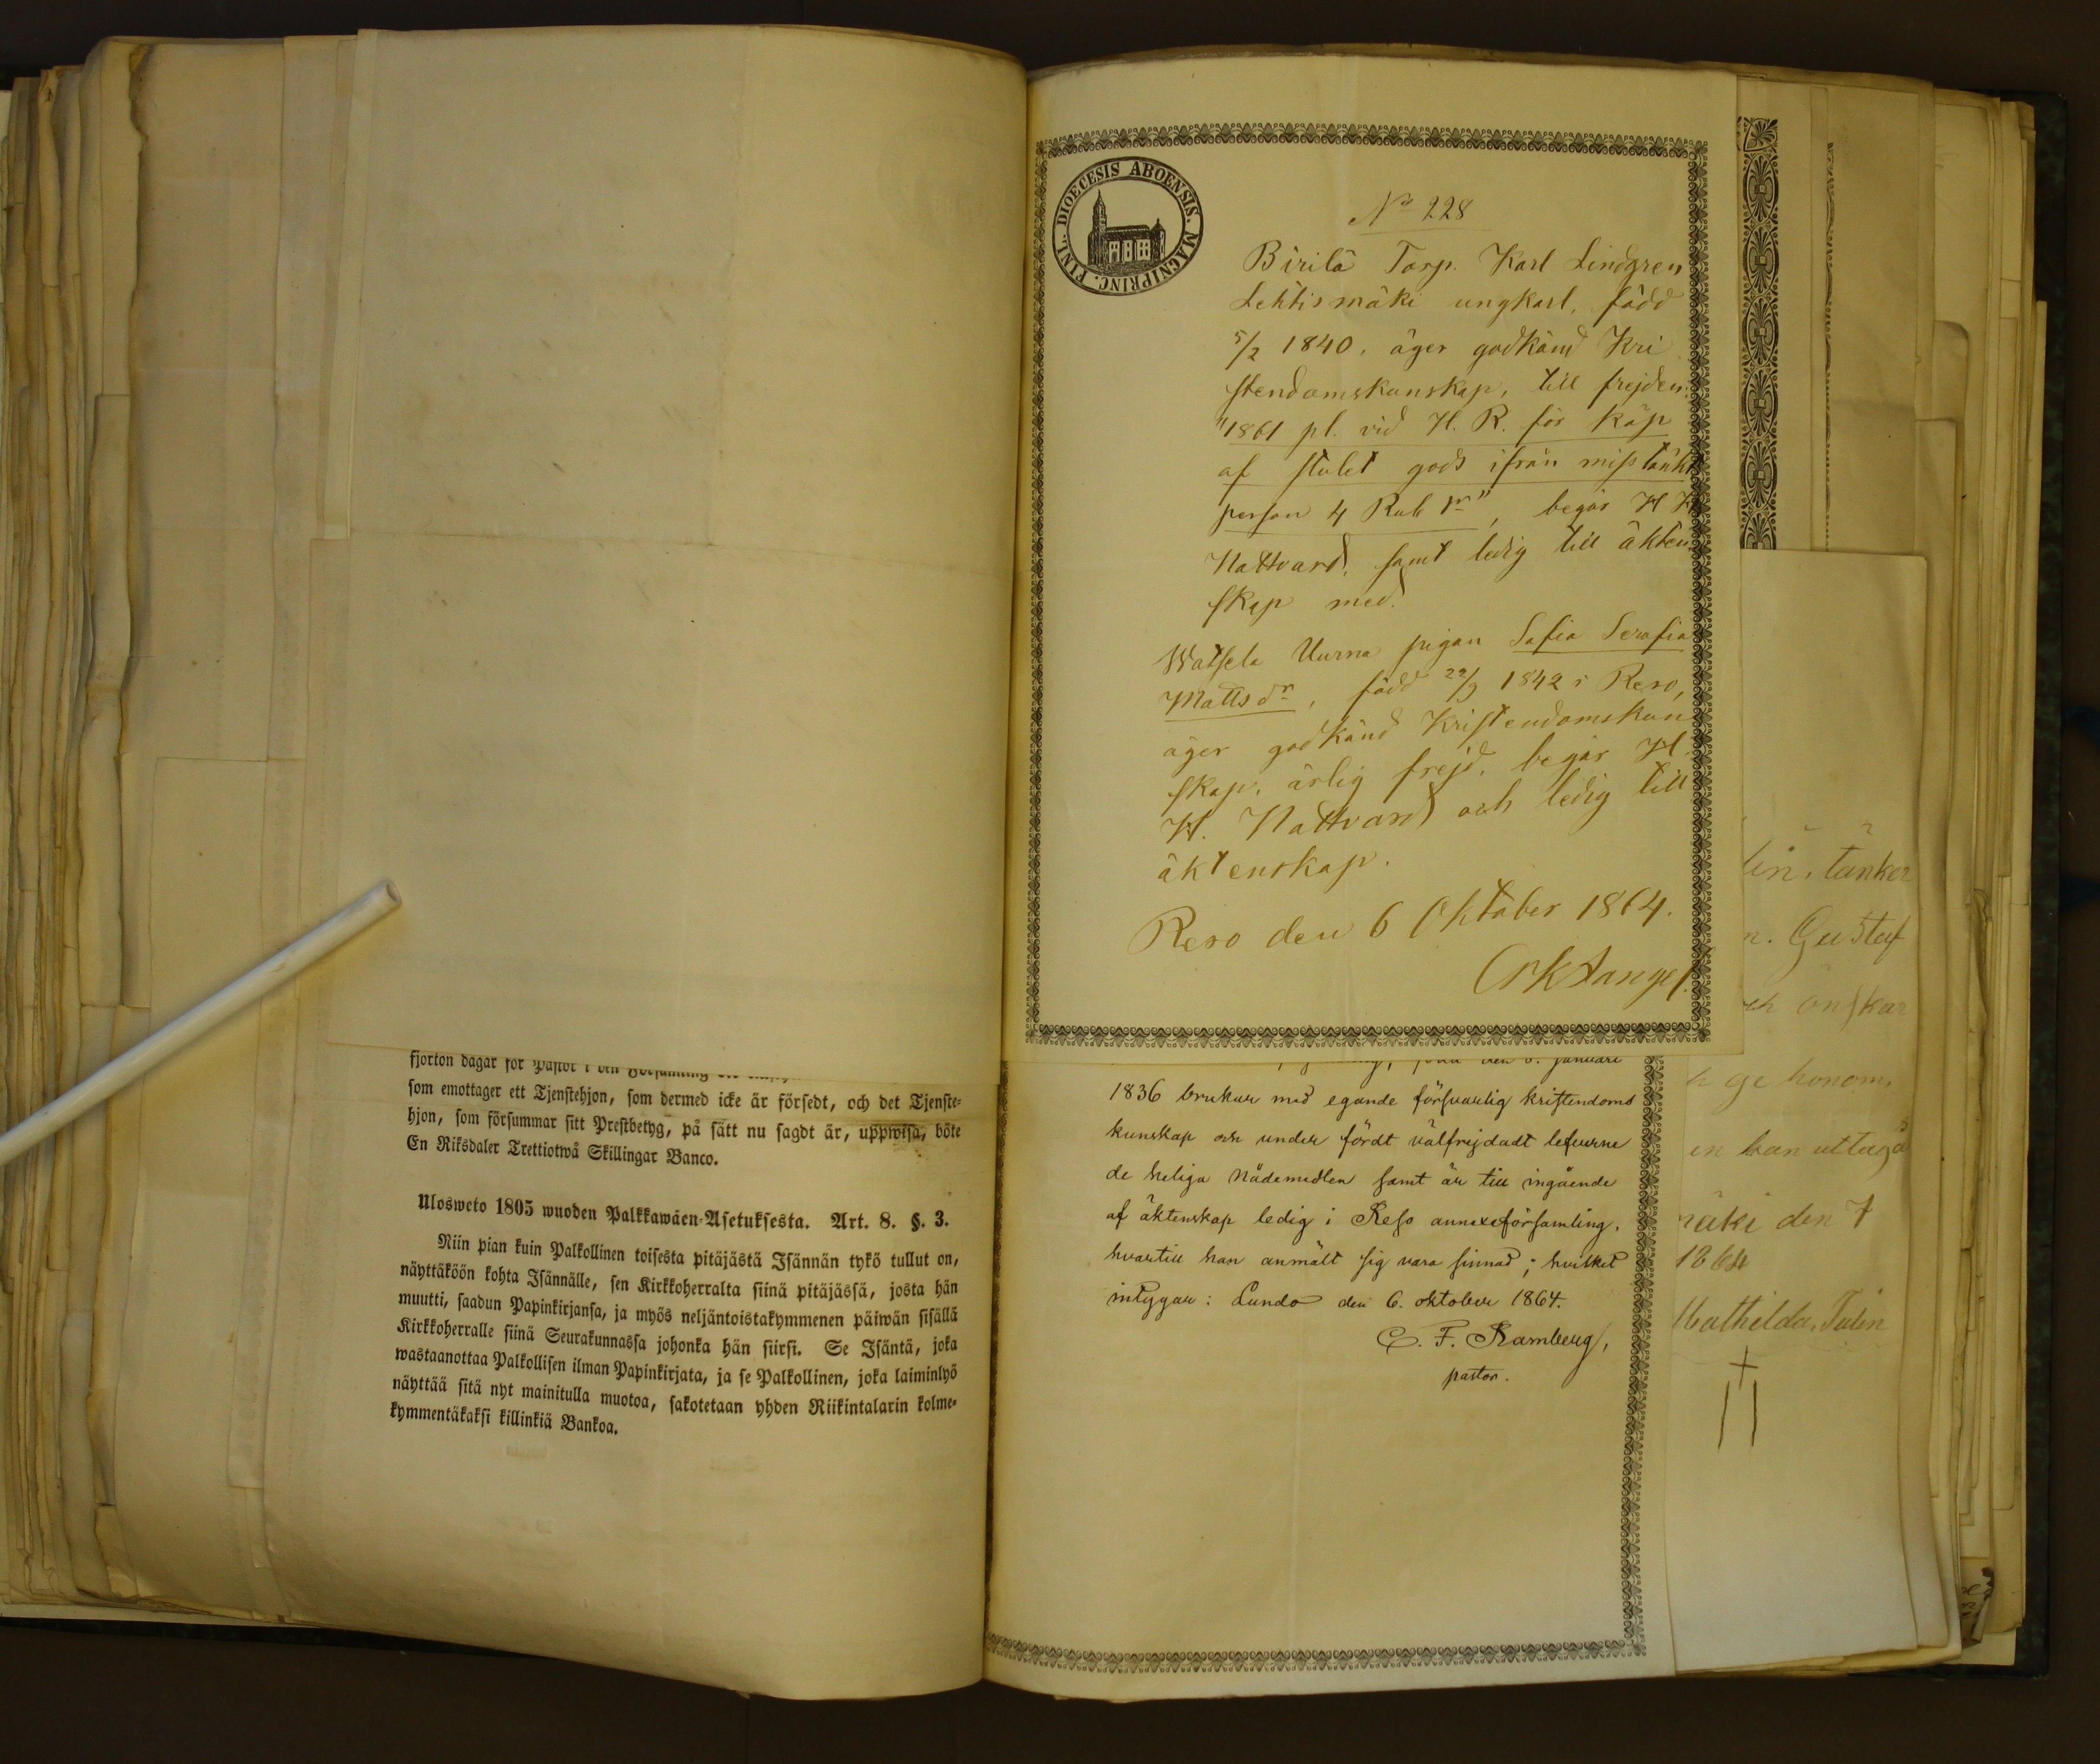 fjorton dagar för Pastor i den
som emottager ett Tjenstehjon, som dermed icke är försedt, och det Tjenste-
hjon, som försummar sitt Prestbetyg, på sätt nu sagdt är, uppwisa, böte
En Riksdaler Trettiotwå Skillingar Banco.
Ulosweto 1805 wuoden Palkkawäen-Asetuksesta. Art. 8. §. 3.
Niin pian kuin Palkollinen toisesta pitäjästä Isännän tykö tullut on,
näyttäköön kohta Isännälle, sen Kirkkoherralta siinä pitäjässä, josta hän
muutti, saadun Papinkirjansa, ja myös neljäntoistakymmenen päiwän sisällä
Kirkkoherralle siinä Seurakunnassa johonka hän siirsi. Se Isäntä, joka
wastaanottaa Palkollisen ilman Papinkirjata, ja se Palkollinen, joka laiminlyö
näyttää sitä nyt mainitulla muotoa, sakotetaan yhden Riikintalarin kolme-
kymmentäkaksi killinkiä Bankoa.
FINL. DIOECESIS ABOENSIS. MAGNIPRINC.
No 228
Birilä Torp. Karl Lindgren
Lehtismäki ungkarl, född
5/2 1840, äger godkänd Kri
stendomskunskap, till frejden,
"1861 pl. vid H. R. för köp
af stulet gods ifrån misstänkt
person 4 Rub sr", begår H H
Nattvard, samt ledig till äkten
skap med.
Watsela Uurna pigan Sofia Serafia
Mattsdr, född 22/9 1842 i Reso,
äger godkänd Kristendomskun
skap, ärlig frejd, begår H.
H. Nattvard och ledig till
äktenskap.
Reso den 6 Oktober 1864.
den 6. januari
1836 brukar med egande försvarlig kristendoms
kunskap och under fördt välfrejdadt lefverne
de heliga nådemedlen samt är till ingående
af äktenskap ledig i Reso annexförsamling,
hvartill han anmält sig vara sinnad; hvilket
intygar: Lundo den 6. oktober 1864.
C. F. Ramberg,
pastor.
lin, tänker
n. Gustaf
och önskar
h ge honom,
en kan uttaga
mäki den 7
1864
Mathilda, Tulin